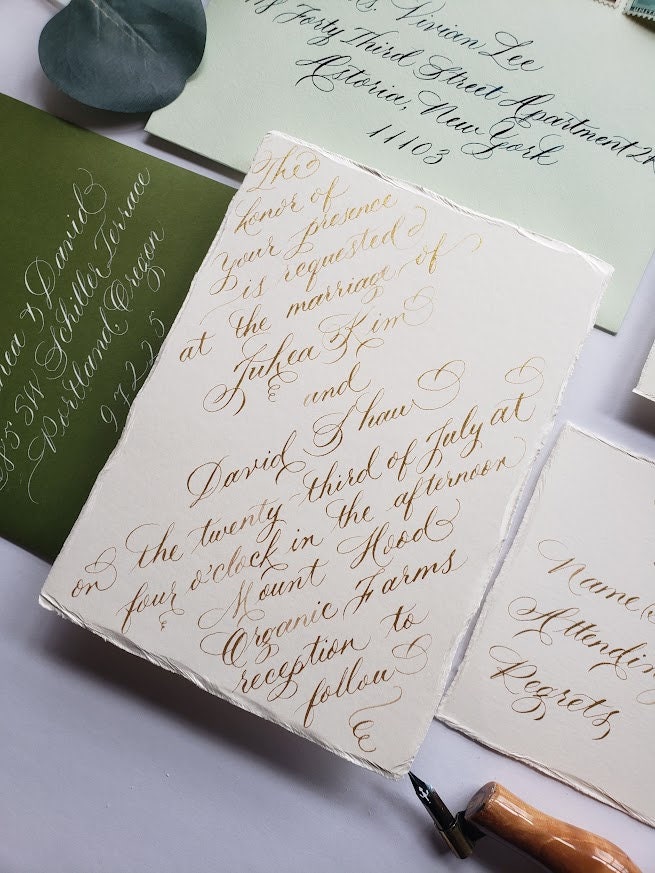 Vivian Lee
Forty Third Street Apartment
Astoria, New York
11103
David
SW Schiller Terrace
Portland, Oregon
97225
The
honor of
your presence
is requested
at the marriage of
Julica Kim
and
David Shaw
on the twenty-third of July at
four o'clock in the afternoon
Mount Hood
Organic Farms
reception to
follow
Name
Attending
Regrets